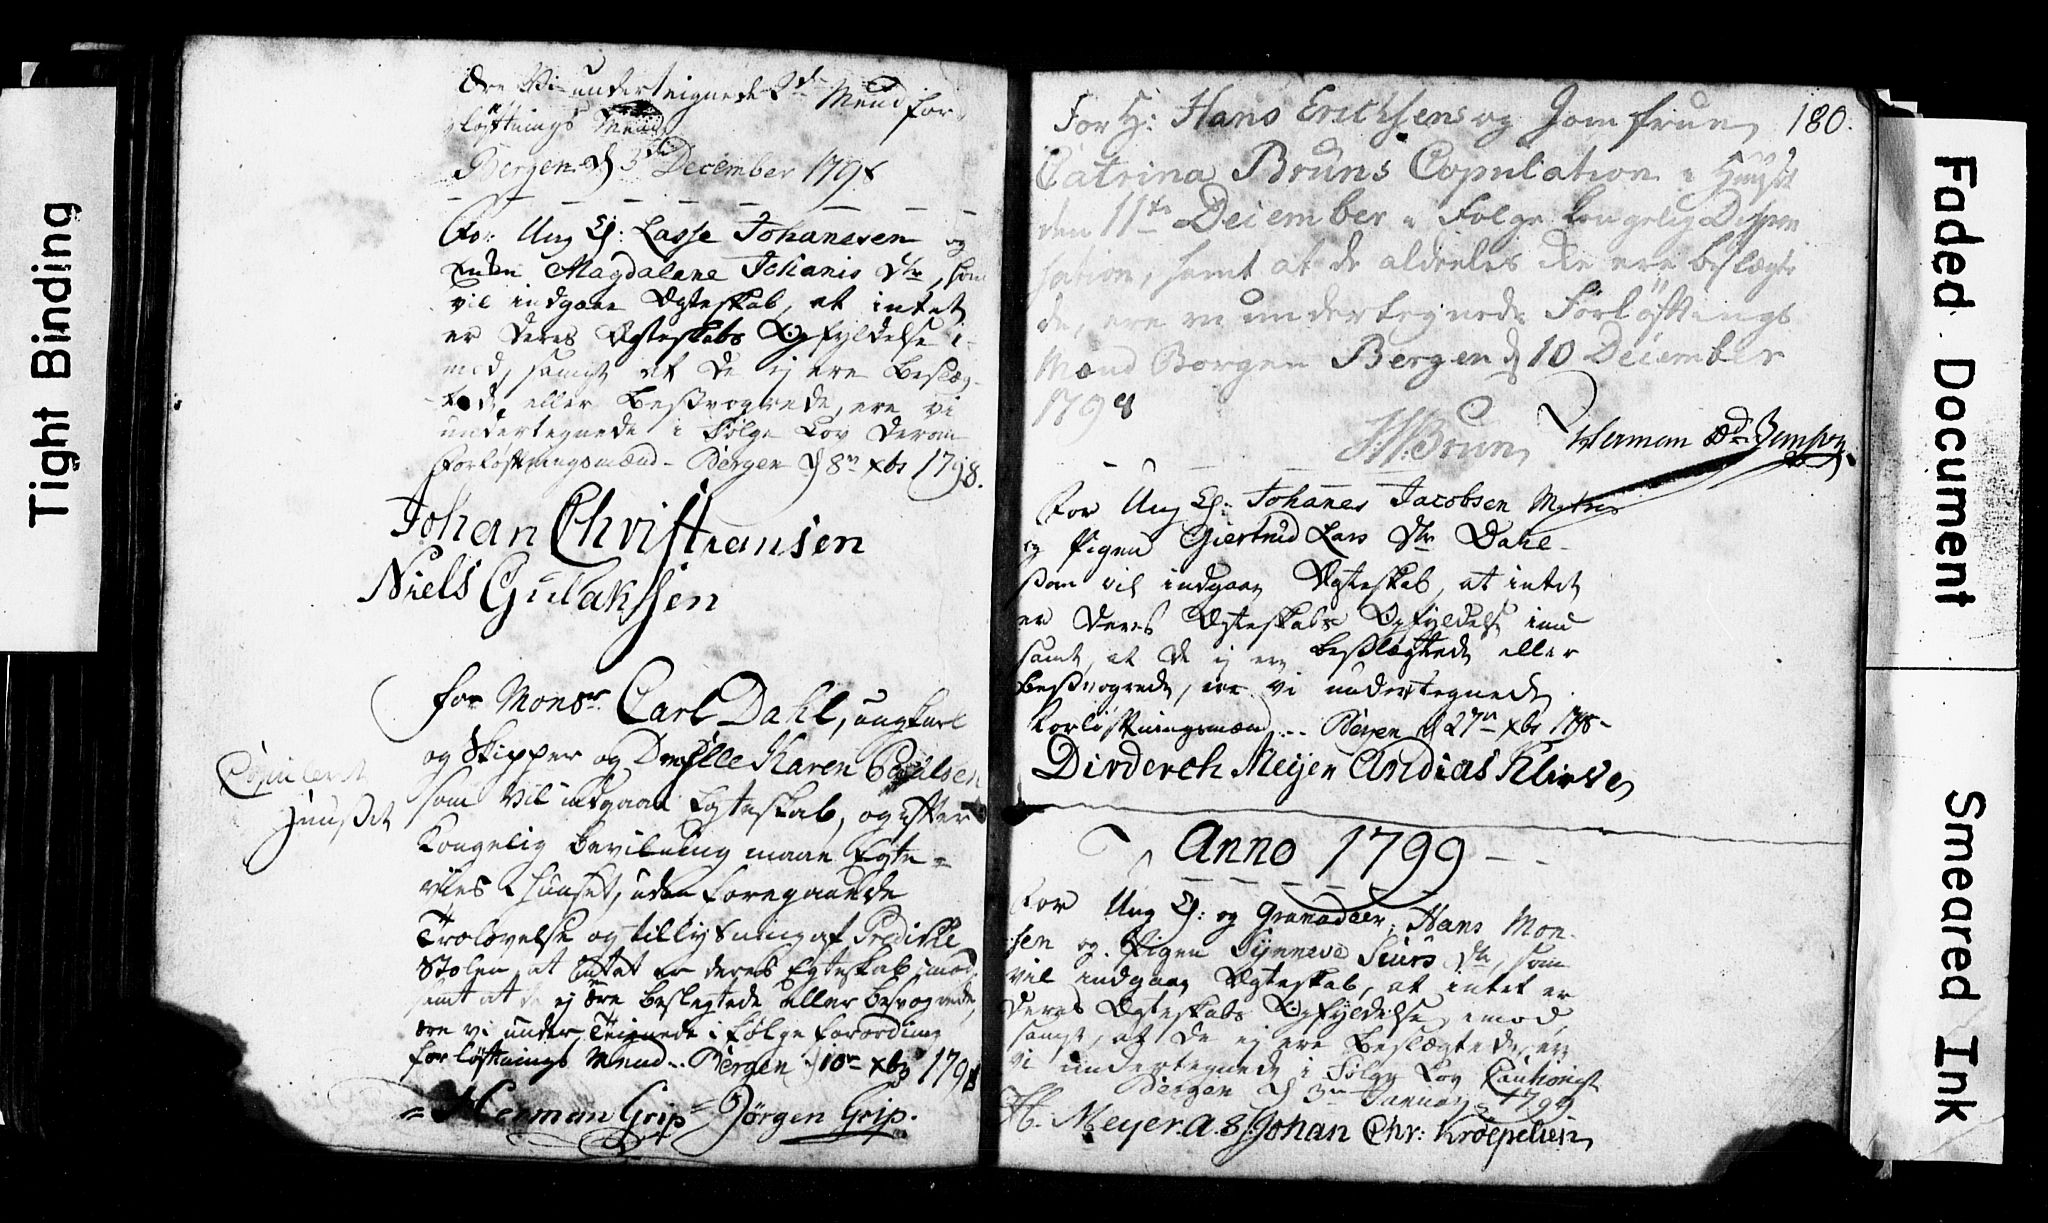 Tight Binding
Ere Vi underteignede 2de Mend for-
løftnings Mend
Bergen d 3de December 1798
For Ung K: Lasse Johanesen og
Enken Magdalene Johanis Dtr, som
vil indgaae Ægteskab, at intet
er Deres Ægteskabs Opfyldelse i-
mod, samgt at De ej ere Beslæg-
tede eller Besvogrede, ere vi
undertegnede i Følge Lov Derom
Forløftningsmænd - Bergen d 8de xbr 1798.
Johan Christiansen
Niels Gulaksen
for Monsr Carl Dahl, ungkarl
og Skipper og Karen
som vil indgaae Egteskab, og efter
Kongelig bevilning maae Egte-
vies i Huuset, uden foregaaende
Troelovelse og tillysning af Predike
Stolen, at intet er deres Egteskab imod,
samt at de ej ere beslegtede eller besvogrede,
ere vi under Teignede i følge forordning
forløftnings Mend - Bergen d 10de xbr 1798
Copuleret
Huuset
= Herman Grip = Jørgen Grip.
180.
For H: Hans Erichsens og Jomfrue
Catrina Bruns Copulation i Huuset
den 11te December i Følge kongelig Dispen
sation, samt at de aldeeles ikke ere beslægte
de, ere vi undertegnede Forløftnings
Mænd Borgen Bergen d 10 December
1798
Brun Herman
For Ung K: Johanes Jacobsen
og Pigen Giertrud Lars Dtr Dahl -
som vil indgaae Ægteskab, at intet
er Deres Ægteskabs Opfyldelse imod
samt, at De ej ere beslægtede eller
besvogrede, ere vi undertegnede
Forløftningsmænd -. Bergen d 27de xbr 1798 -
Dirderch Meijer Andias Klinve
Anno 1799 - -
For Ung K: og Granadeer, Hans Mon-
sen og Pigen Synneve Siurs Dtr, som
vil indgaae Ægteskab, at intet er
Deres Ægteskabs Opfyldelse imod,
samgt, at De ej ere Beslægtede, ere
vi undertegnede i Følge Lov Cautionist
Bergen d 3de January 1799
H. Meyer. A. S. Johan Chr: Krøepelien
Faded Document
Smeared Ink